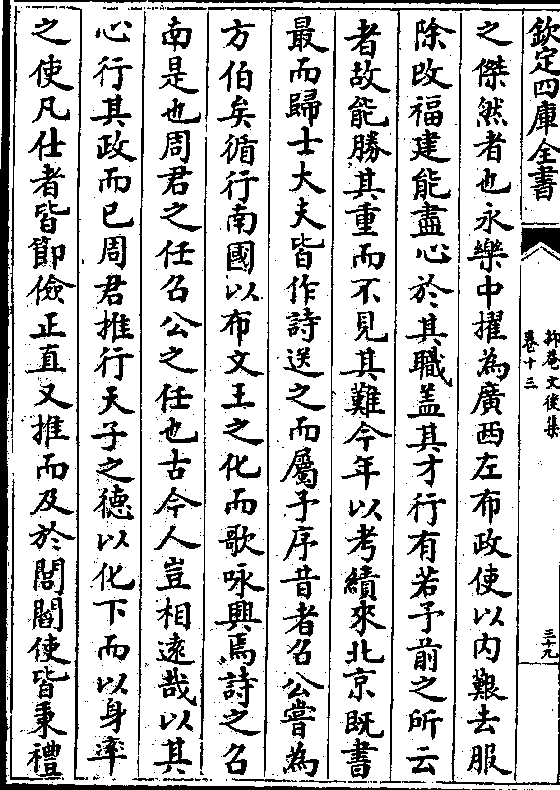 欽定四庫全書
抑菴文後集
卷十三
三十九
之傑然者也永樂中擢為廣西左布政使以内艱去服
除改福建能盡心於其職蓋其才行有若予前之所云
者故能勝其重而不見其難今年以考績來北京既書
最而歸士大夫皆作詩送之而屬予序昔者召公嘗為
方伯矣循行南國以布文王之化而歌咏興焉詩之召
南是也周君之任召公之任也古今人豈相逺哉以其
心行其政而已周君推行天子之德以化下而以身率
之使凡仕者皆節儉正直又推而及於閭閻使皆秉禮